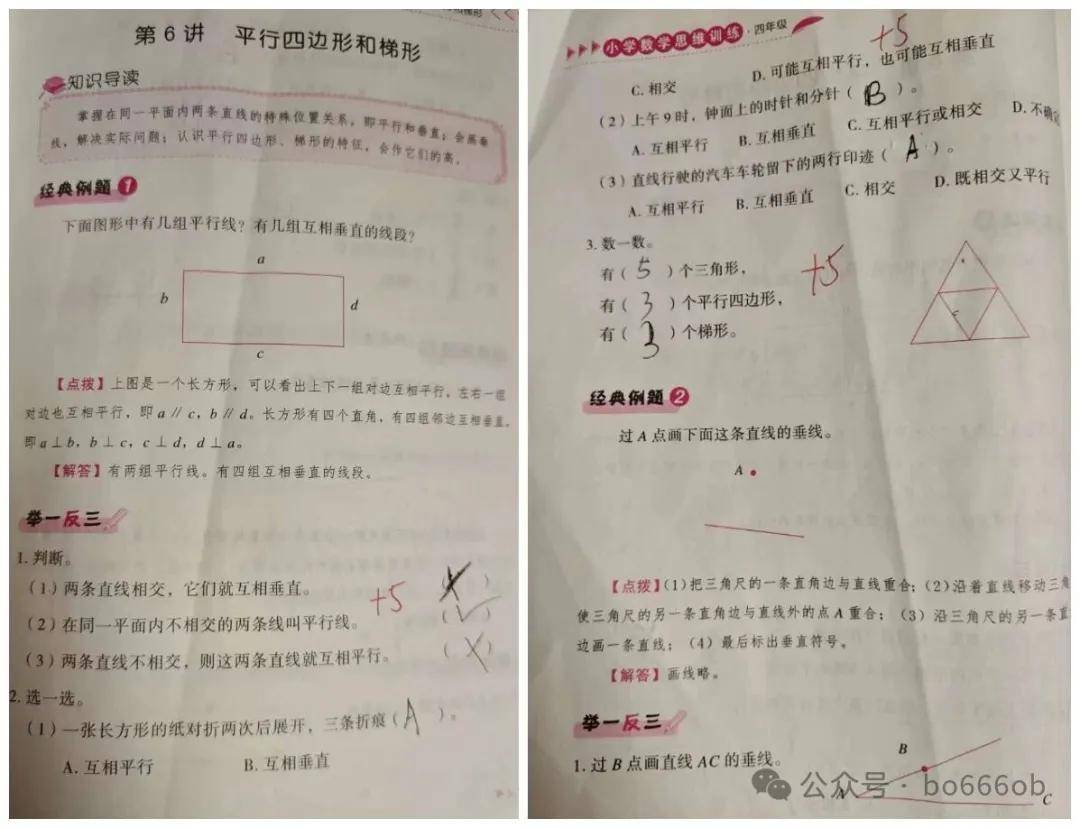 第6讲 平行四边形和梯形
知识导读
掌握在同一平面内两条直线的特殊位置关系，即平行和垂直；会画垂
线，解决实际问题；认识平行四边形、梯形的特征，会作它们的高。
经典例题1
下面图形中有几组平行线？有几组互相垂直的线段？
a
b
d
c
【点拨】上图是一个长方形，可以看出上下一组对边互相平行，左右一组
对边也互相平行，即a∥c，b∥d。长方形有四个直角，有四组邻边互相垂直，
即a⊥b，b⊥c，c⊥d，d⊥a。
【解答】有两组平行线。有四组互相垂直的线段。
举一反三
1.判断。
（1）两条直线相交，它们就互相垂直。（×）
+5
（2）在同一平面内不相交的两条线叫平行线。（√）
（3）两条直线不相交，则这两条直线就互相平行。（×）
2.选一选。
（1）一张长方形的纸对折两次后展开，三条折痕（A）。
A.互相平行 B.互相垂直
小学数学思维训练·四年级
+5
C.相交 D.可能互相平行，也可能互相垂直
（2）上午9时，钟面上的时针和分针（B）。
A.互相平行 B.互相垂直 C.互相平行或相交 D.不确定
（3）直线行驶的汽车车轮留下的两行印迹（A）。
A.互相平行 B.互相垂直 C.相交 D.既相交又平行
3.数一数。
有（5）个三角形，
+5
有（3）个平行四边形，
有（3）个梯形。
经典例题2
过A点画下面这条直线的垂线。
A
【点拨】（1）把三角尺的一条直角边与直线重合；（2）沿着直线移动三角
使三角尺的另一条直角边与直线外的点A重合；（3）沿三角尺的另一条直
边画一条直线；（4）最后标出垂直符号。
【解答】画线略。
举一反三
1.过B点画直线AC的垂线。
B
A
C
公众号·bo666ob